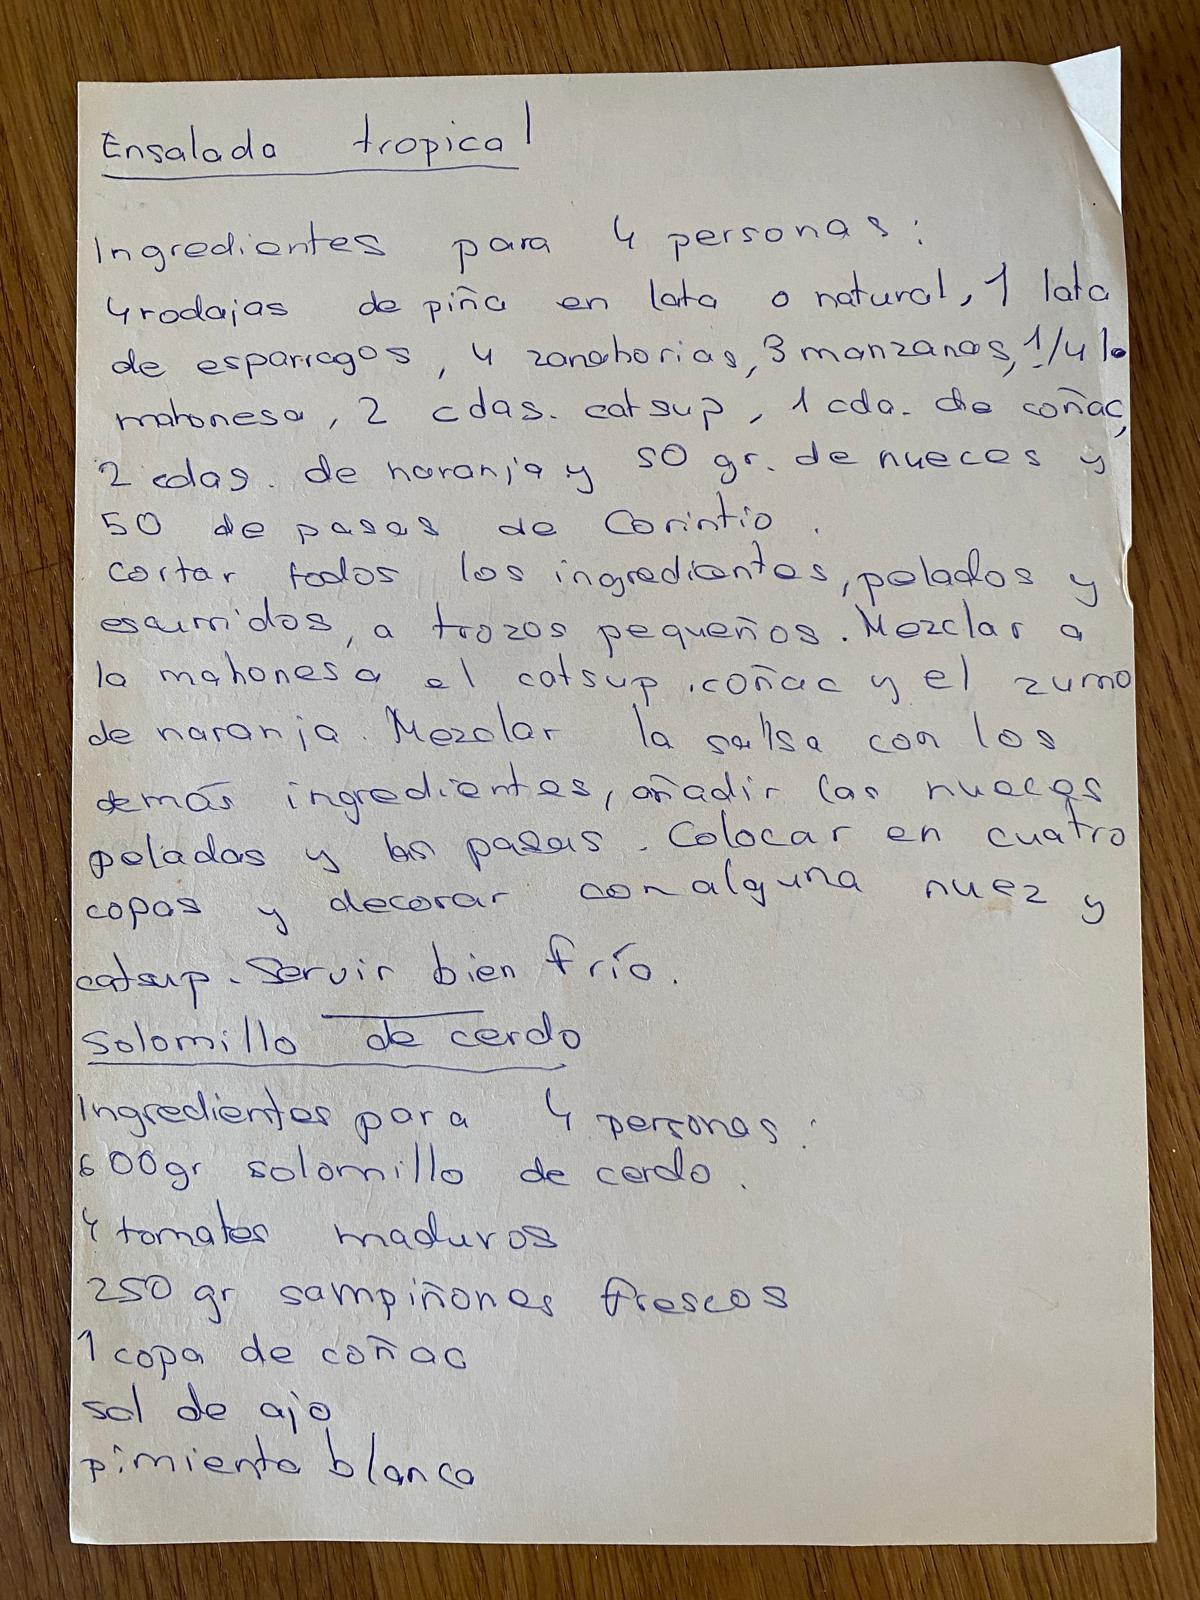 Ensalada tropical
Ingredientes para 4 personas:
4 rodajas de piña en lata o natural, 1 lata
de esparragos, 4 zanahorias, 3 manzanas, 1/4 l.
mahonesa, 2 cdas. catsup, 1 cda. de coñac,
2 cdas. de naranja y 50 gr. de nueces y
50 de pasas de Corintio.
cortar todos los ingredientes, pelados y
escurridos, a trozos pequeños. Mezclar a
la mahonesa el catsup, coñac y el zumo
de naranja. Mezclar la salsa con los
demás ingredientes, añadir las nueces
peladas y las pasas. Colocar en cuatro
copas y decorar con alguna nuez y
catsup. Servir bien frío.
Solomillo de cerdo
Ingredientes para 4 personas:
600 gr solomillo de cerdo.
4 tomates maduros
250 gr sampiñones frescos
1 copa de coñac
sal de ajo
pimienta blanca